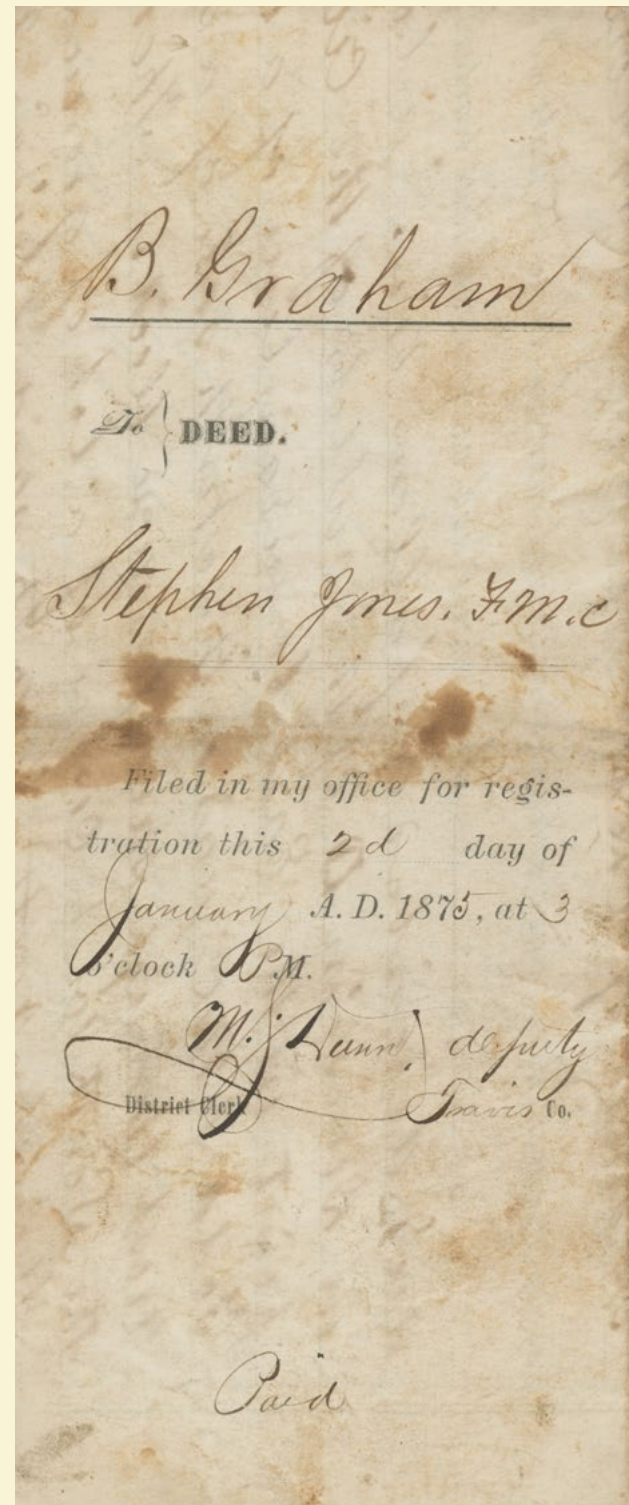 B. Graham
To } DEED.
Stephen Jones. F.M.C
Filed in my office for regis-
tration this 2d day of
January A. D. 1875, at 3
o'clock P M.
M. J. Dunn, deputy
District Clerk Travis Co.
Paid